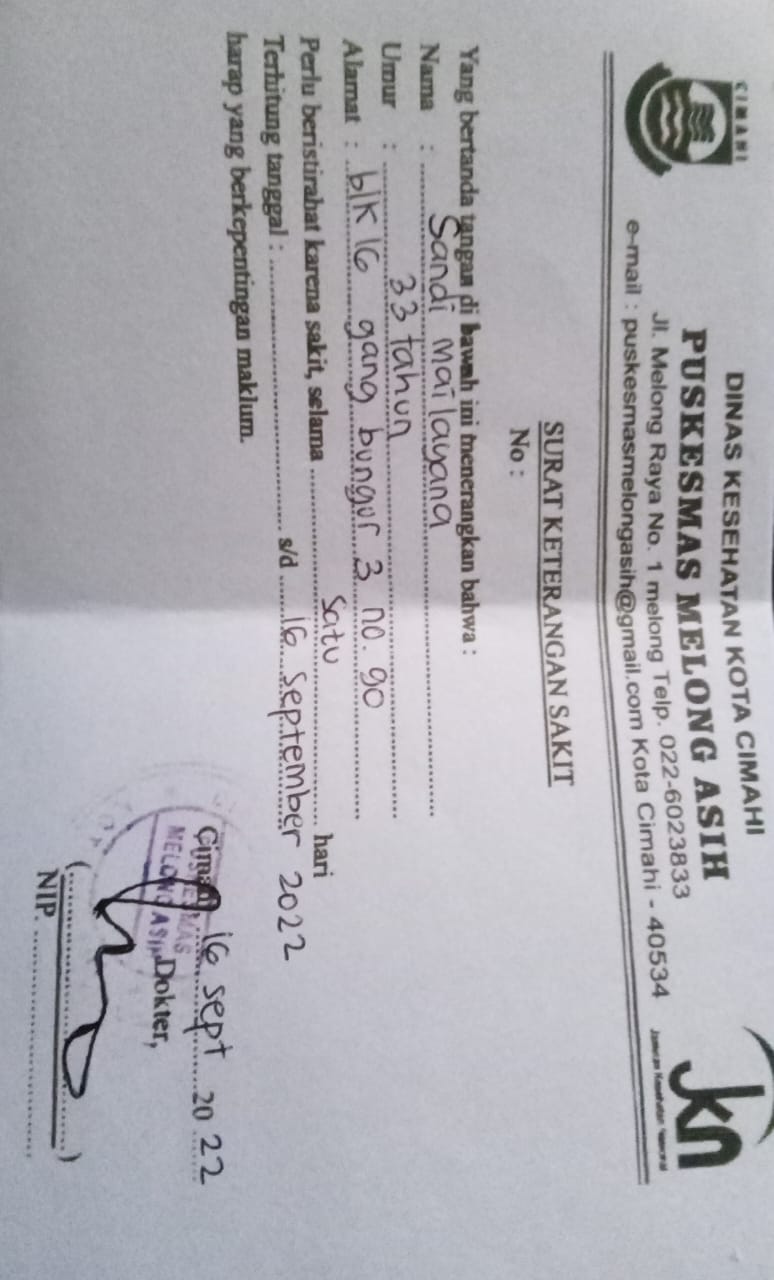 CIMAHI
DINAS KESEHATAN KOTA CIMAHI
PUSKESMAS MELONG ASIH
Jl. Melong Raya No. 1 melong Telp. 022-6023833
e-mail : puskesmasmelongasih@gmail.com Kota Cimahi - 40534
jkn
Jaminan Kesehatan Nasional
SURAT KETERANGAN SAKIT
No :
Yang bertanda tangan di bawah ini menerangkan bahwa :
Nama : Sandi mailayana
Umur : 33 tahun
Alamat : blk 16 gang bungur 3 no. 90
Perlu beristirahat karena sakit, selama satu hari
Terhitung tanggal : s/d 16 September 2022
harap yang berkepentingan maklum.
Cimahi, 16 sept 2022
PUSKESMAS
MELONG ASIH
Dokter,
(....................)
NIP. ....................